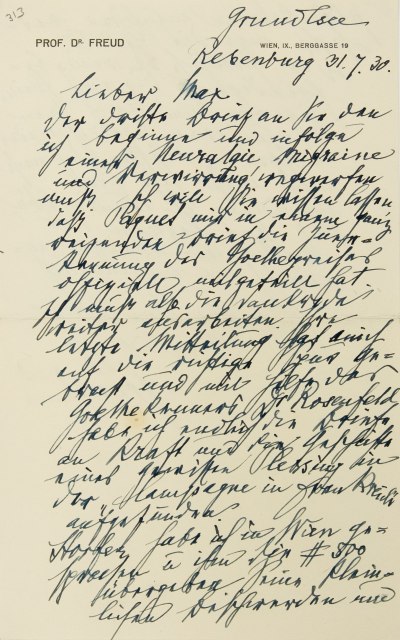 313
Grundlsee
PROF. DR. FREUD
WIEN, IX., BERGGASSE 19
Rebenburg 31.7.30.
Lieber Max
Der dritte Brief an Sie den
ich beginne und infolge
einer Neuralgie Migraine
und Verwirrung wegwerfen
muß. Ich will Sie wissen lassen
daß Paquet mir in einem ganz
reizenden Brief die Zuer-
kennung des Goethepreises
offiziell mitgeteilt hat.
Ich muß also die Dankrede
weiter ausarbeiten. Ihre
letzte Mitteilung hat mich
auf die richtige Spur ge-
bracht und mit Hilfe des
Goethekenners Dr Rosenfeld
habe ich endlich die Briefe
an Krafft und die Geschichte
eines gewissen Plessing in
der "Campagne in Frankreich"
aufgefunden
habe ich in Wien ge-
sprochen u ihm die # 500
übergeben. Seine klein-
lichen Beschwerden und